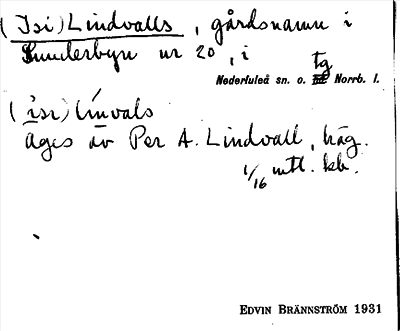 (Isi) Lindvalls, gårdsnamn i
Sunderbyn nr 20, i
tg
Nederluleå sn. o. Norrb. l.
(isi) linvals
Äges av Per A. Lindvall, häg.
1/16 mtl. kb.
EDVIN BRÄNNSTRÖM 1931